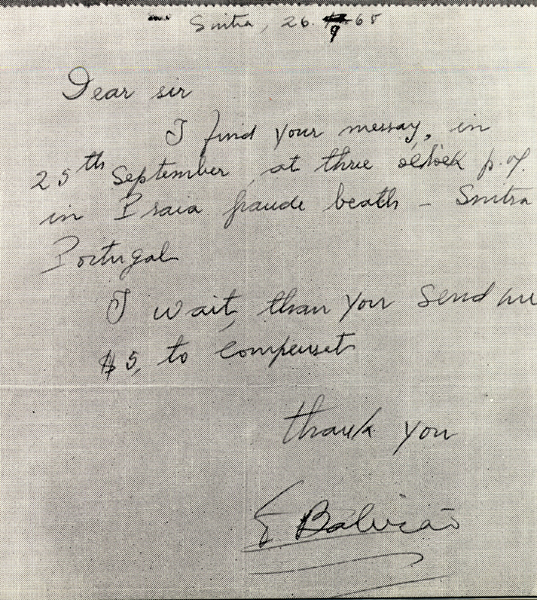 Sintra, 26. 9 65
Dear sir
I find your messay, in
25th September, at three oclock p.m.
in Praia graude beath - Sintra
Portugal
I wait, than you send me
$5, to compensate
thank you
E Balição